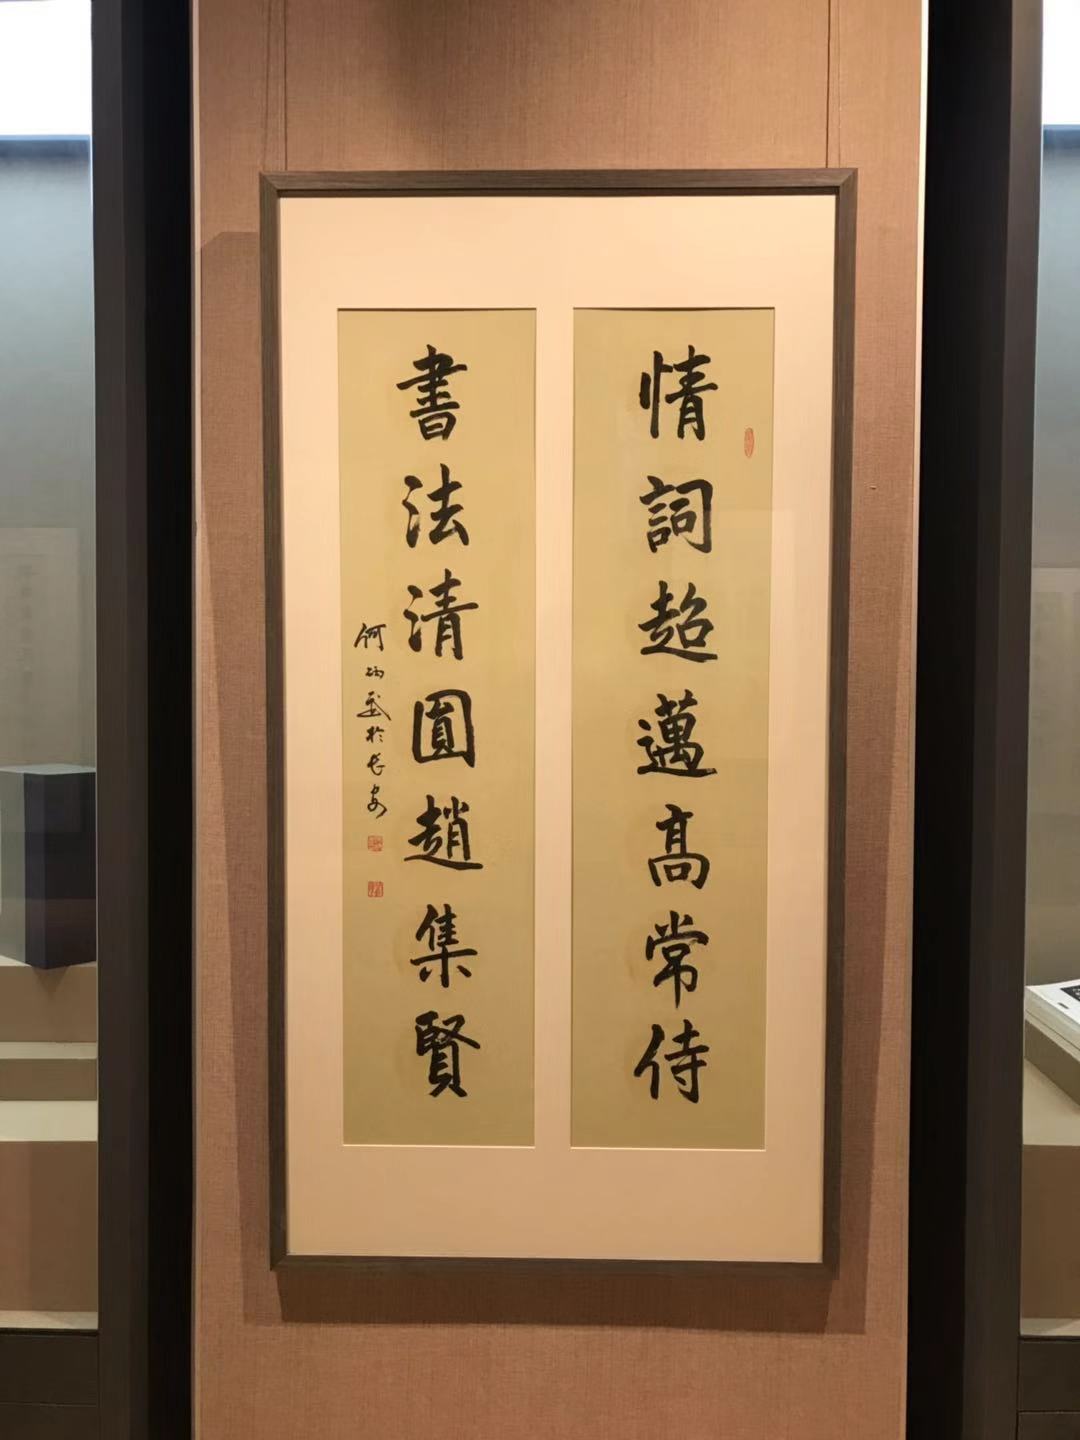 情詞超邁高常侍
書法清圓趙集賢
何炳武於長安